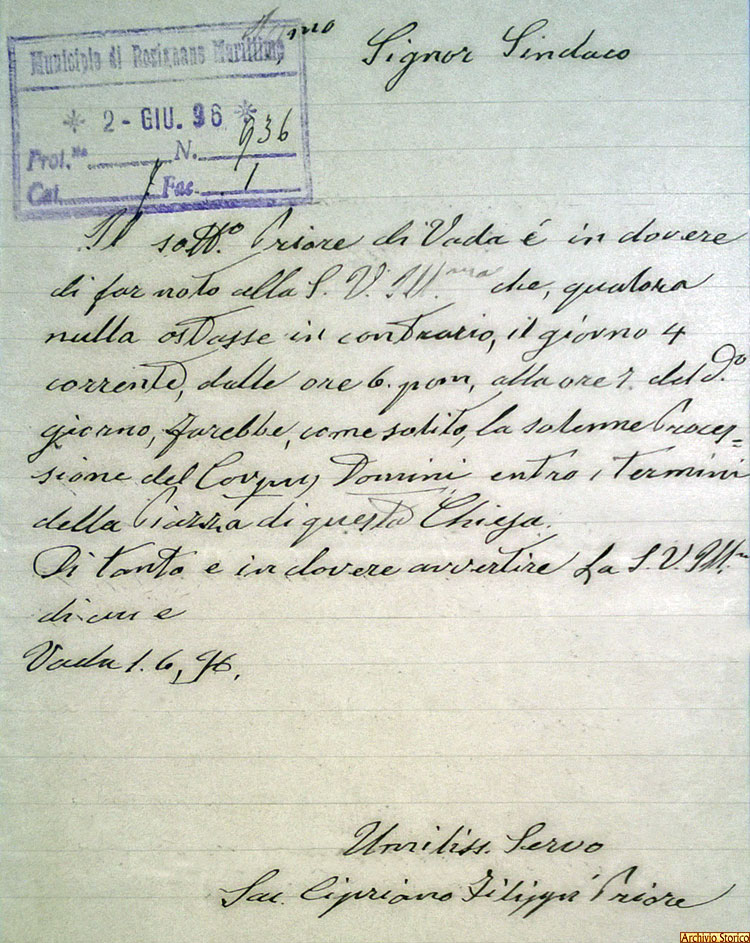 Ill.mo Signor Sindaco
Municipio di Rosignano Marittimo
* 2 - GIU. 96 *
Prot. No N. 936
Cat. Fas. 1
Il sott.o Priore di Vada é in dovere
di far noto alla S. V. Ill.ma che, qualora
nulla ostasse in contrario, il giorno 4
corrente, dalle ore 6. pom, alla ore 7. del d.o
giorno, farebbe, come solito, la solenne Proces=
sione del Corpus Domini entro i termini
della Piazza di questa Chiesa.
Di tanto e in dovere avvertire La S. V. Ill.ma
di cui e
Vada 1. 6, 96.
Umiliss. Servo
Sac. Cipriano Filippi Priore
Archivio Storico